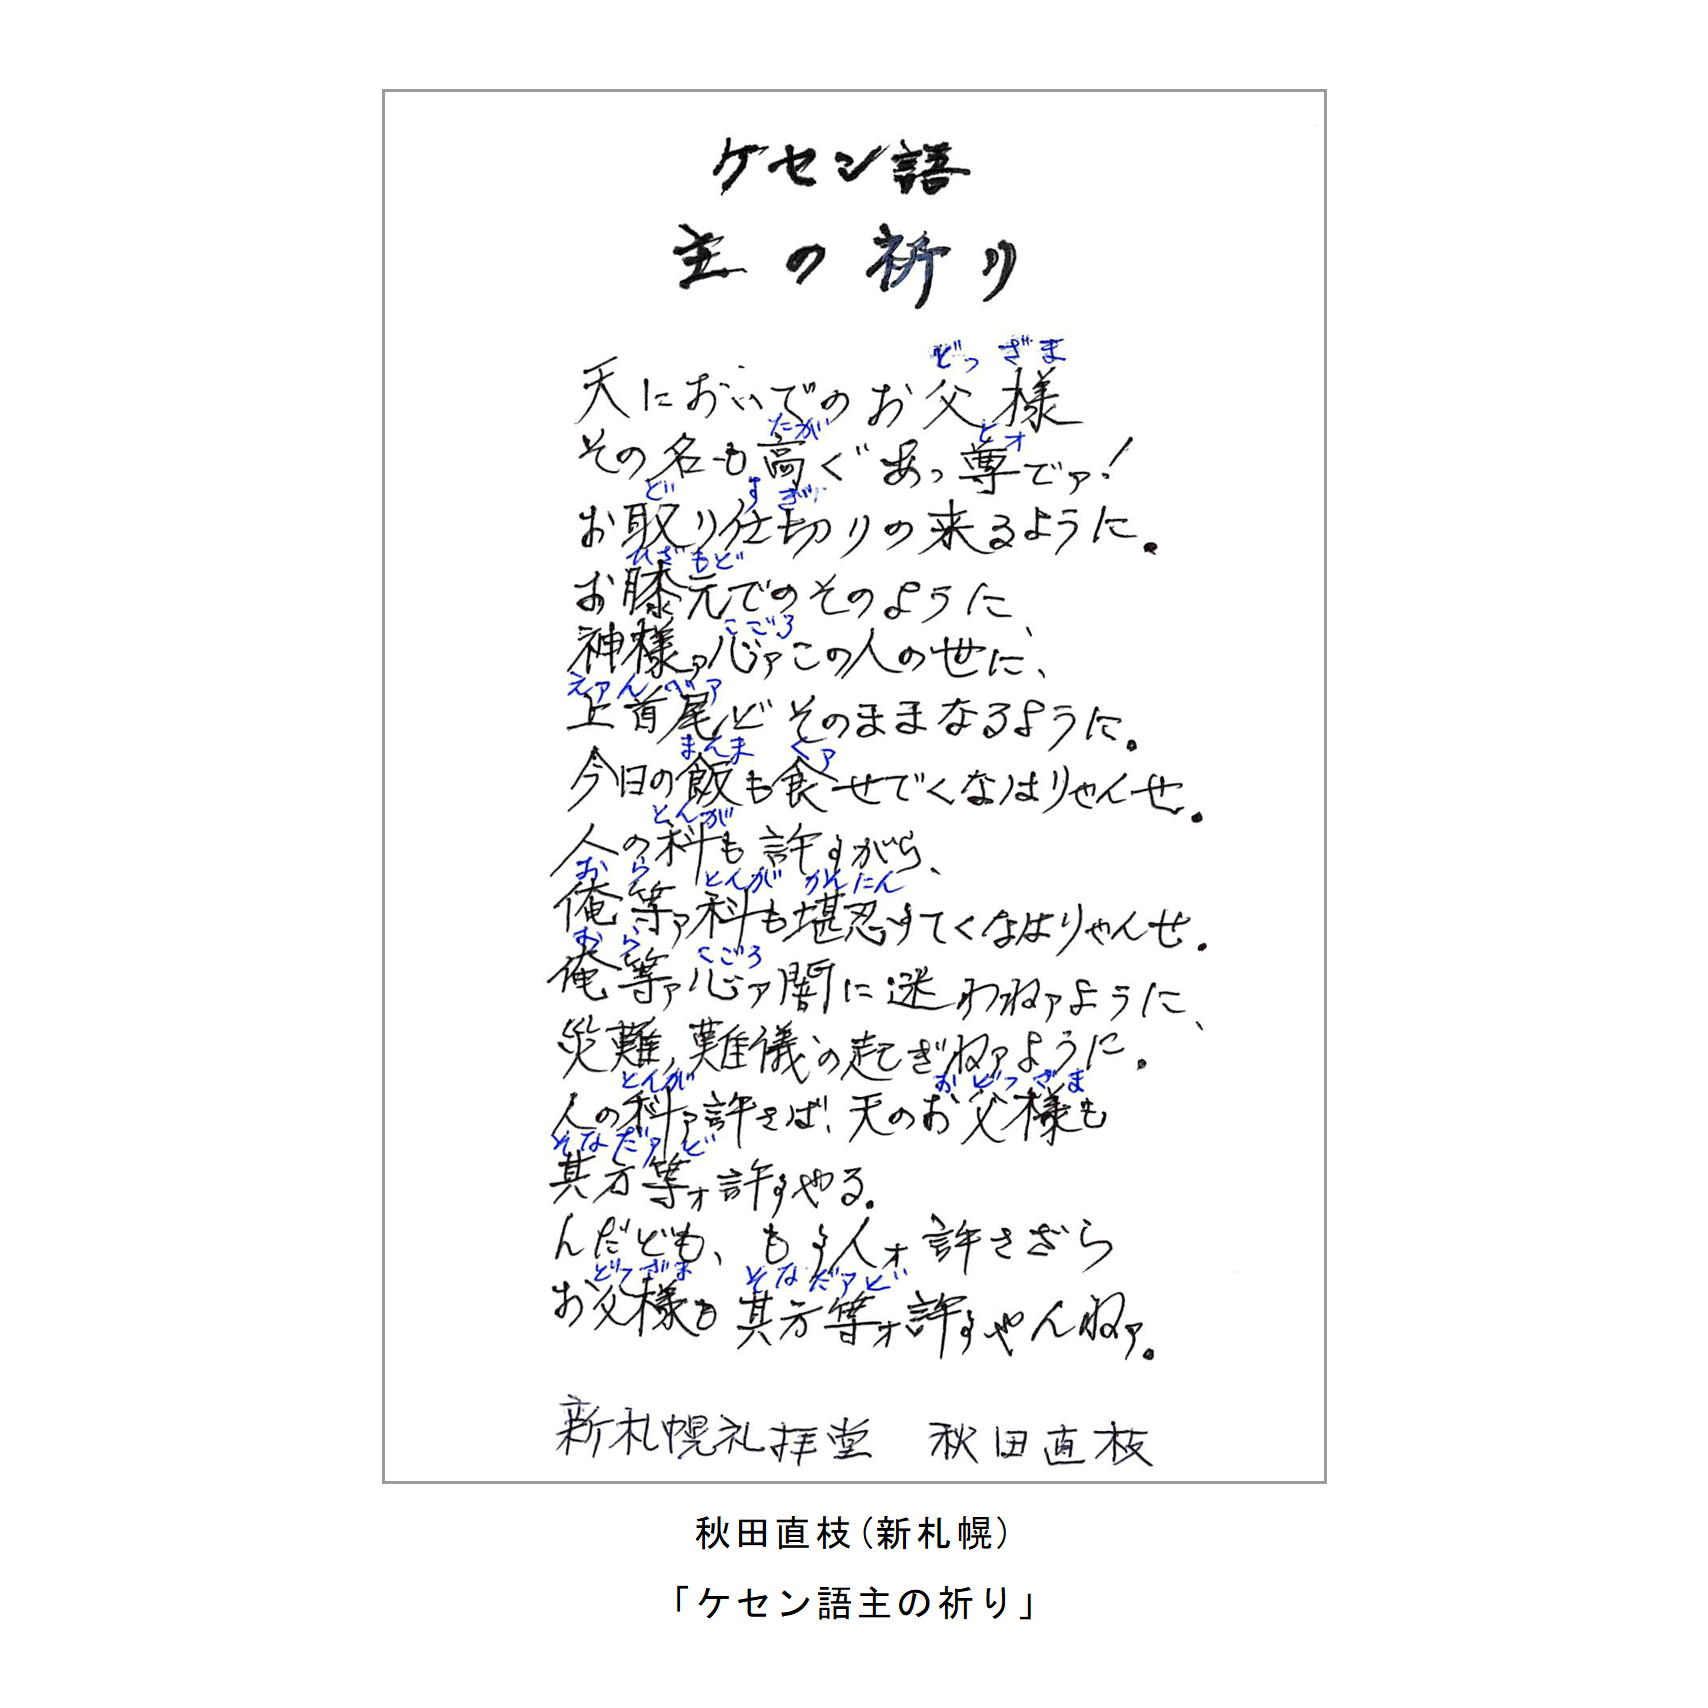 ケセン語
主の祈り
どっざま
天においでのお父様
たが とォ
その名も高ぐあっ尊でァ!
ど すぎ
お取り仕切りの来るように。
ひざもど
お膝元でのそのように、
こごろ
神様ァ心ァこの人の世に、
えァんべァ
上首尾どそのままなるように。
まんま くァ
今日の飯も食せでくなはりゃんせ。
とんが
人の科も許すがら、
おら とんが かんにん
俺等ァ科も堪忍すてくなはりゃんせ。
おら こごろ
俺等ァ心ァ闇に迷わねァように、
災難、難儀の起ぎねァように。
とんが おどっざま
人の科ァ許さば、天のお父様も
そなだァど
其方等ォ許すやる。
んだども、もす人ォ許さざら
どっざま そなだァど
お父様も其方等ォ許すやんねァ。
新札幌礼拝堂 秋田直枝
秋田直枝(新札幌)
「ケセン語主の祈り」